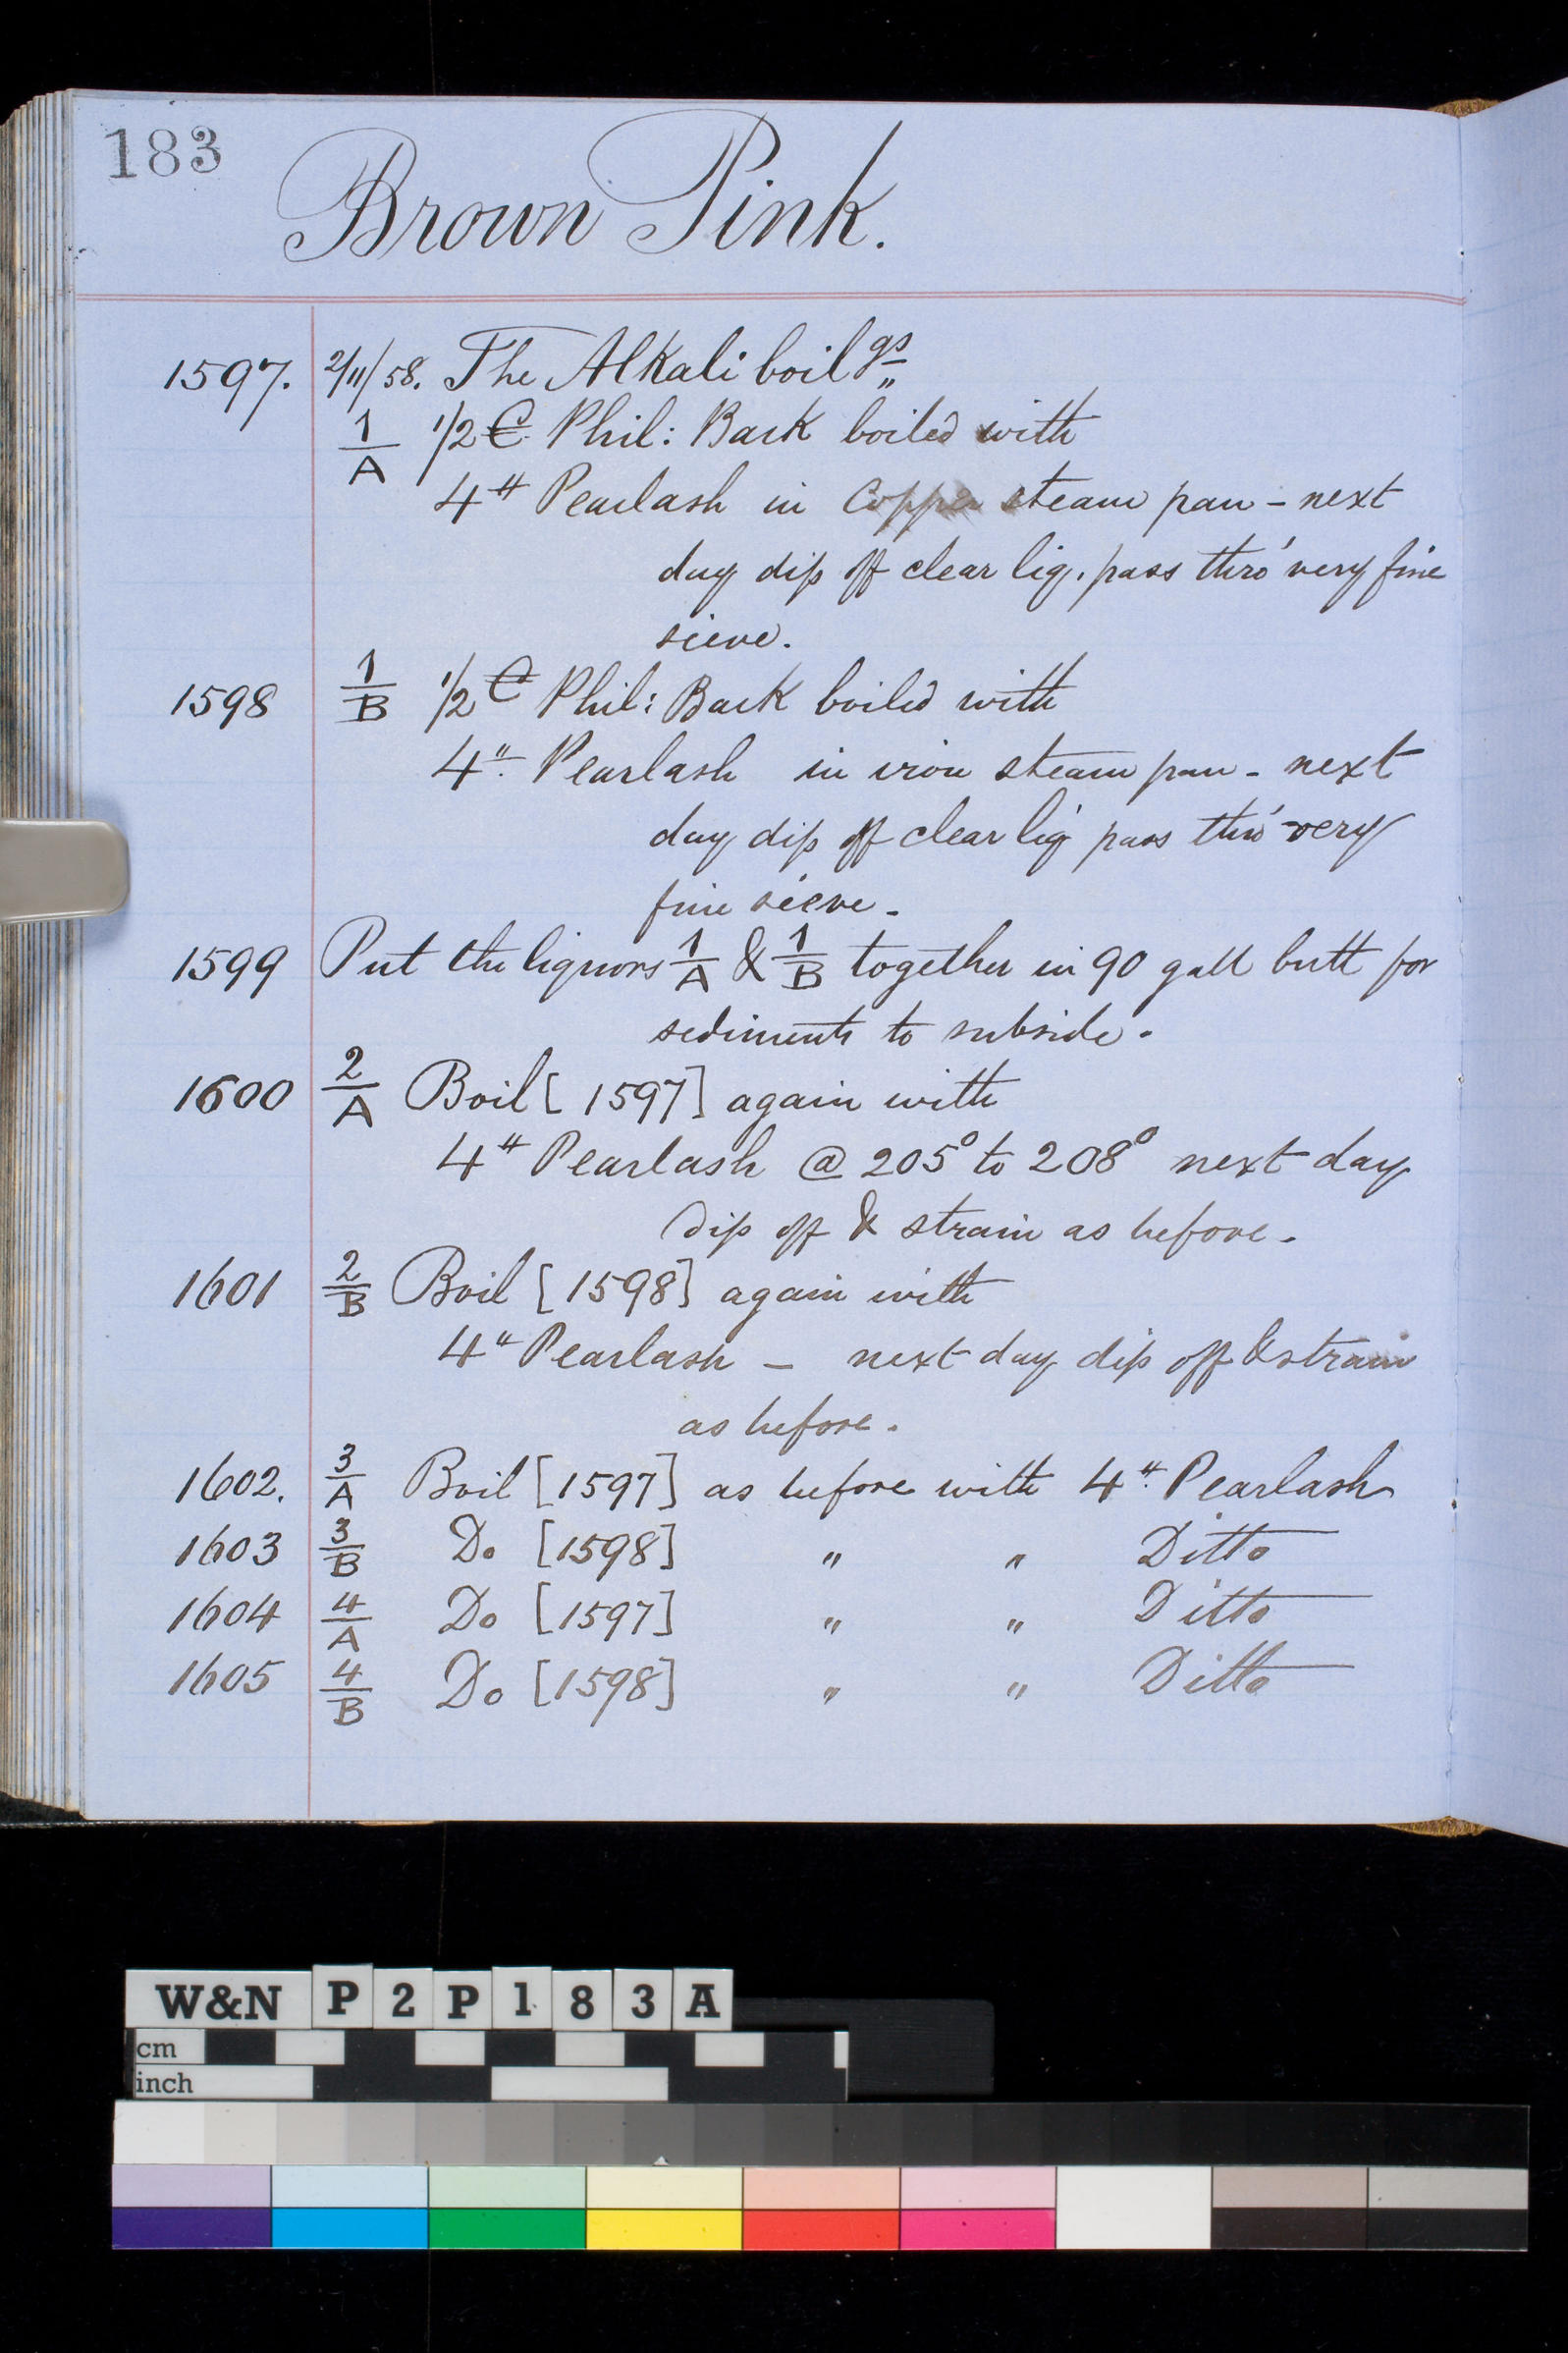 183
Brown Pink.
1597. 2/11/58. The Alkali boilgs
1/A 1/2 C Phil: Bark boiled with
4 ℔ Pearlash in Copper steam pan – next
day dip off clear liq. pass thro' very fine
sieve.
1598 1/B 1/2 C Phil: Bark boiled with
4 ". Pearlash in iron steam pan – next
day dip off clear liq pass thro' very
fine sieve –
1599 Put the liquors 1/A & 1/B together in 90 gall butt for
sediments to subside.
1600 2/A Boil [1597] again with
4 ℔ Pearlash @ 205° to 208° next day
dip off & strain as before –
1601 2/B Boil [1598] again with
4 " Pearlash – next day dip off & strain
as before.
1602. 3/A Boil [1597] as before with 4 ". Pearlash
1603 3/B Do [1598] " " Ditto
1604 4/A Do [1597] " " Ditto
1605 4/B Do [1598] " " Ditto
W&N P2P183A
cm
inch